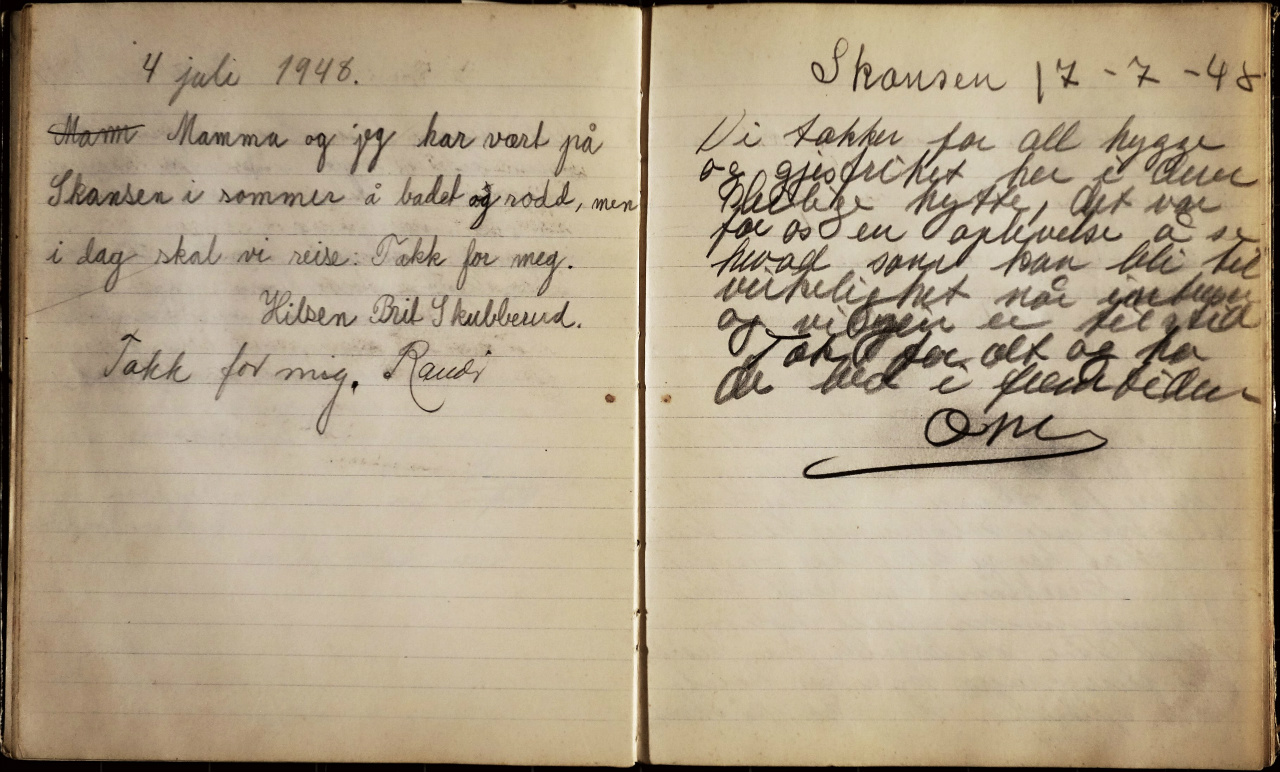 4 juli 1948.
Mamm Mamma og jeg har vært på
Skansen i sommer å badet og rodd, men
i dag skal vi reise. Takk for meg.
Hilsen Brit Skubberud.
Takk for mig. Randi
Skansen 17-7-48
Vi takker for all hygge
og gjesfrihet her i deres
hytte, det var
for os en oplevelse å se
hvad som kan bli til
virkelighet når
og viljen er tilsted
Takk for alt og ha
de bra i fremtiden